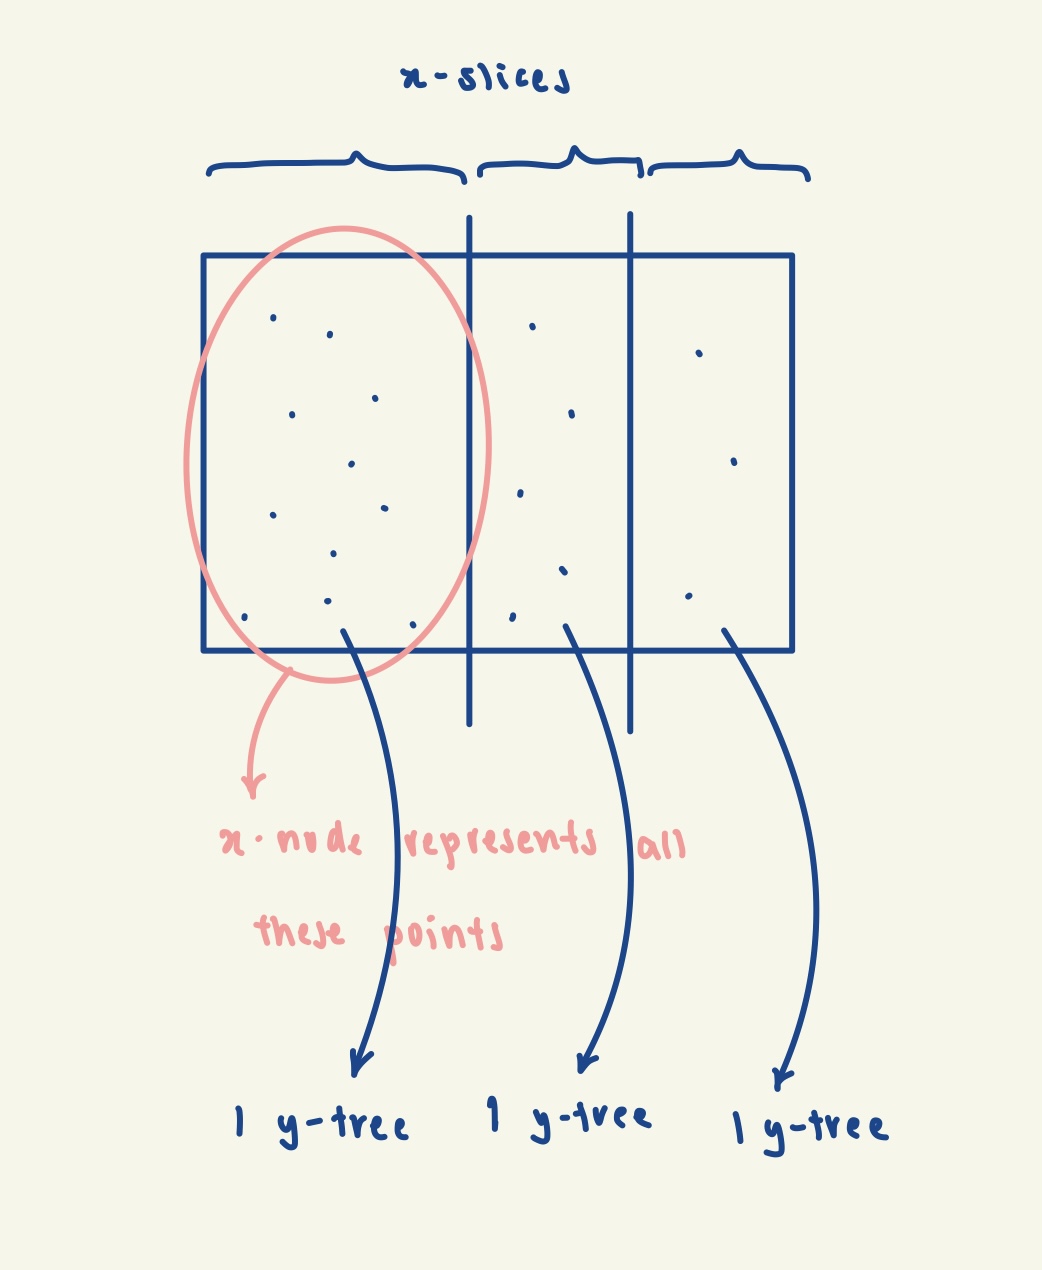 x-slices
x-node represents all
these points
1 y-tree
1 y-tree
1 y-tree